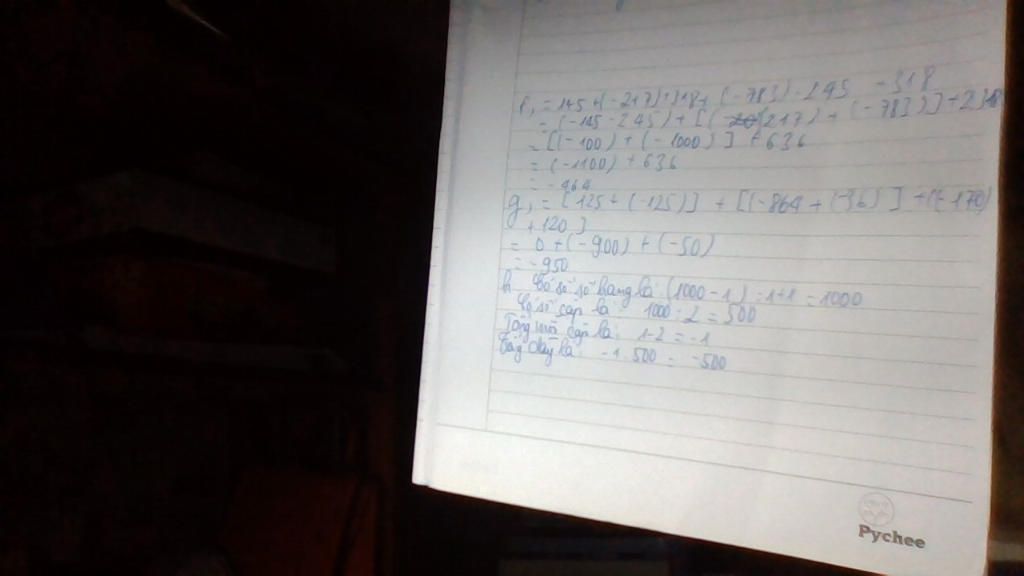 f, = 145 + (-217) + 318 + (-783) - 245 - 318
= (-145 - 245) + [(217) + (-783)] + 2
= [(-100) + (-1000)] + 636
= (-1100) + 636
= -464
g, = [125 + (-125)] + [(-864 + (-36)] + [(-170)
+ 120]
= 0 + (-900) + (-50)
= -950
h, số số hạng là: (1000 - 1) : 1 + 1 = 1000
số cặp là: 1000 : 2 = 500
Tổng mỗi cặp là: 1 - 2 = -1
Tổng dãy là: -1. 500 = -500
Pychee